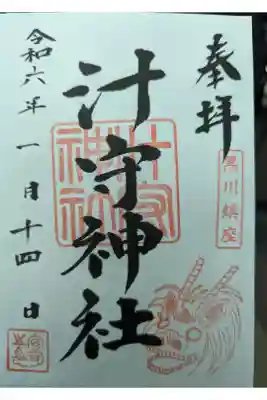 奉拝
黒川鎮座
汁守神社
汁守神社
令和六年一月十四日